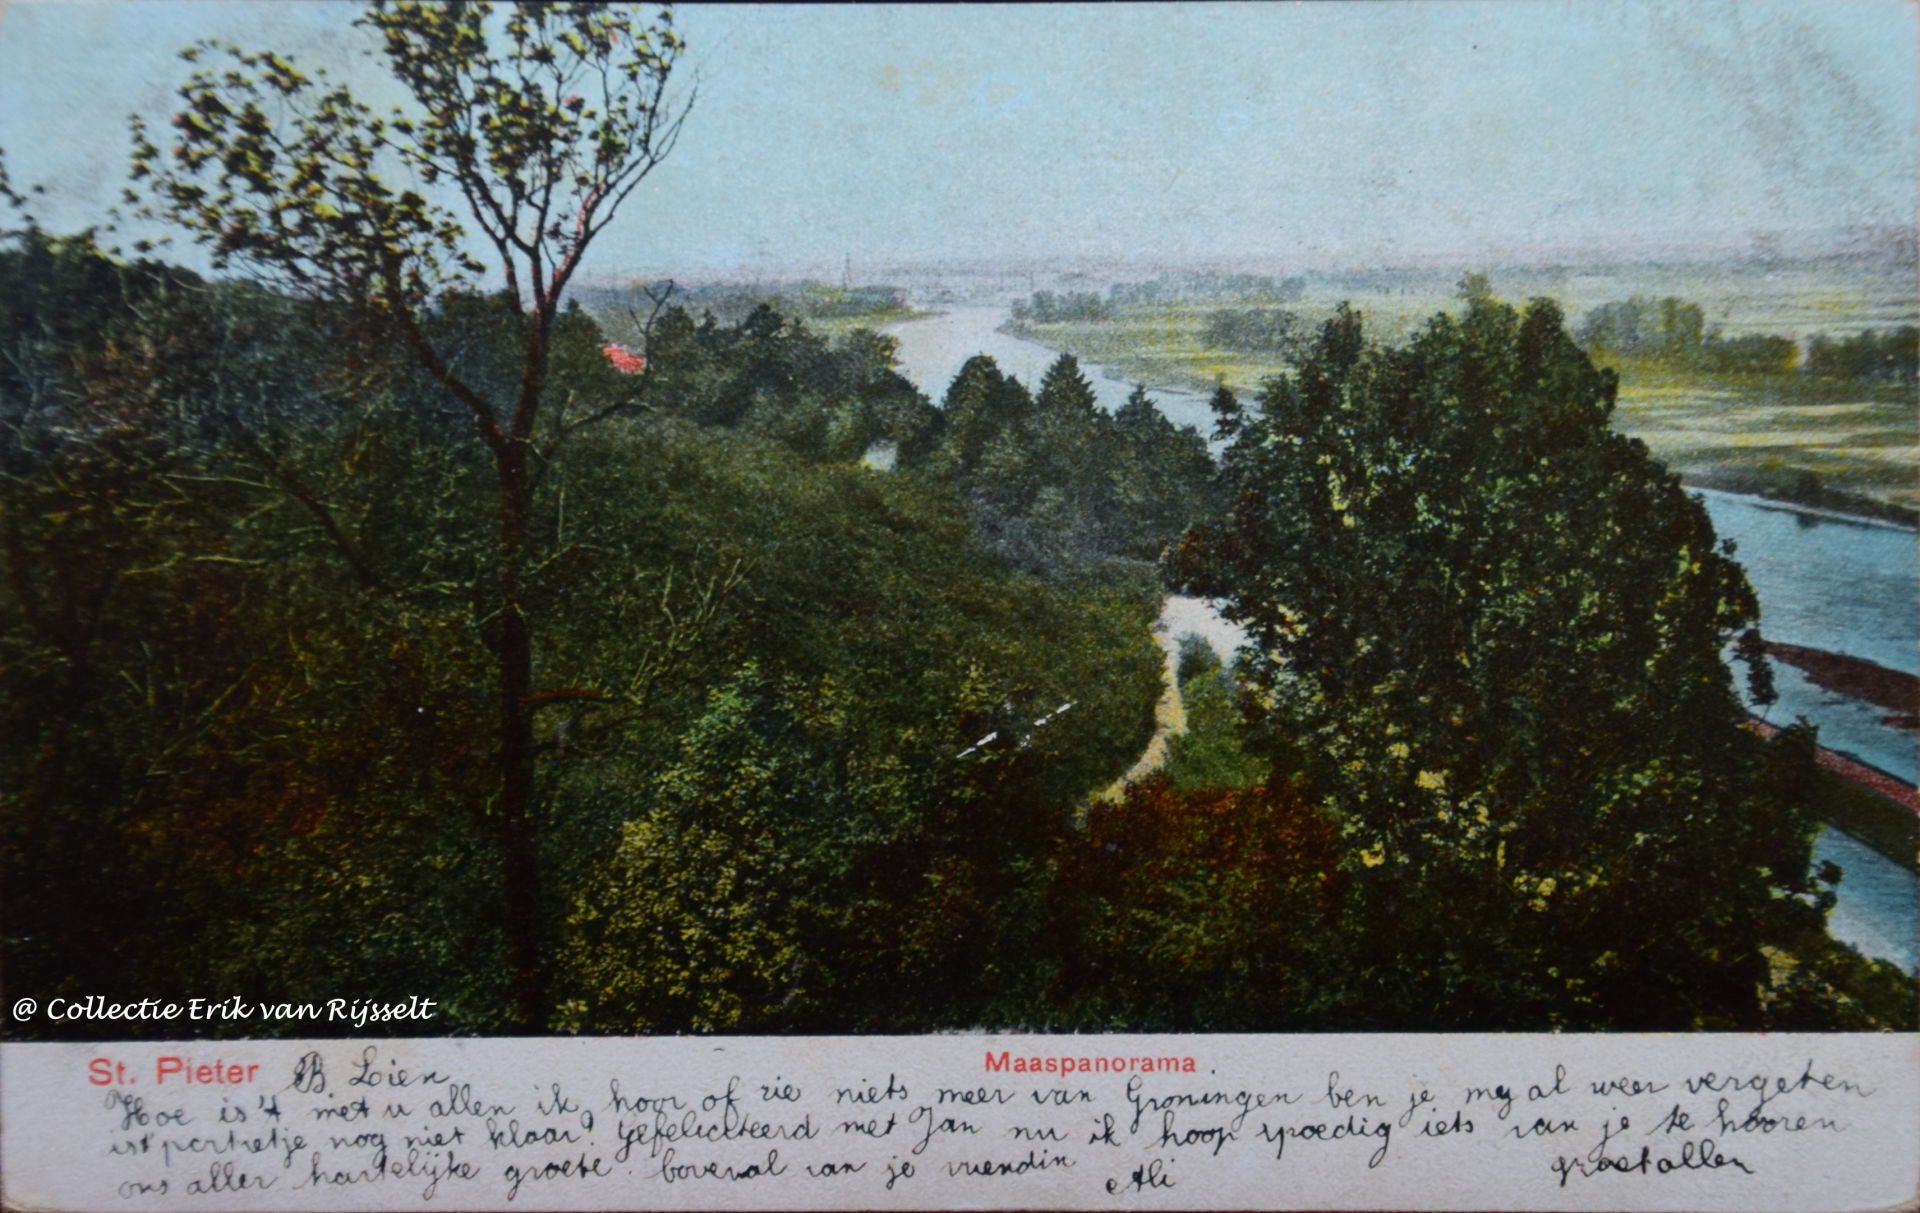 @ Collectie Erik van Rijsselt
St. Pieter
Maaspanorama
B Lien
Hoe is 't met u allen ik hoor of zie niets meer van Groningen ben je my al weer vergeten
ist portretje nog niet klaar? Gefeliciteerd met Jan nu ik hoop spoedig iets van je te hooren
ons aller hartelijke groete. boveral van je vriendin Ali
Groet allen